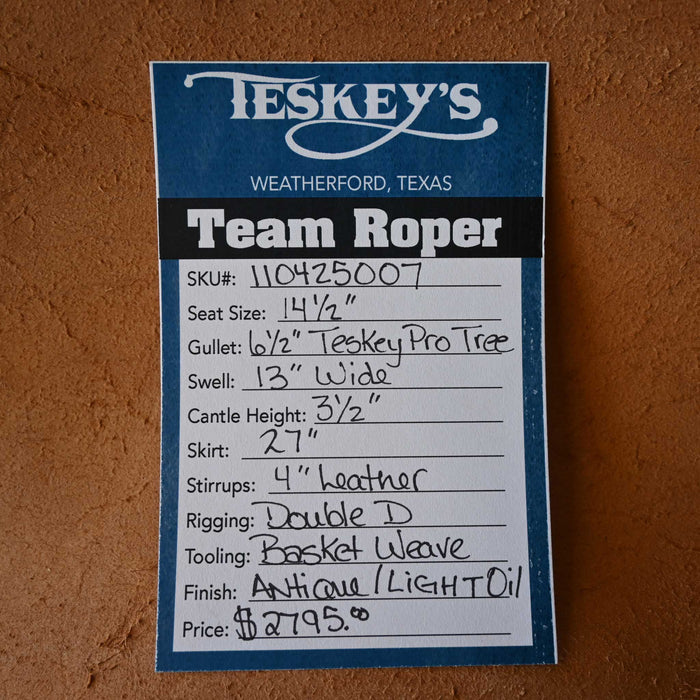 TESKEY'S
WEATHERFORD, TEXAS
Team Roper
SKU#: 110425007
Seat Size: 14 1/2"
Gullet: 6 1/2" Teskey Pro Tree
Swell: 13" Wide
Cantle Height: 3 1/2"
Skirt: 27"
Stirrups: 4" Leather
Rigging: Double D
Tooling: Basket Weave
Finish: Antique/LIGHT Oil
Price: $2795.00